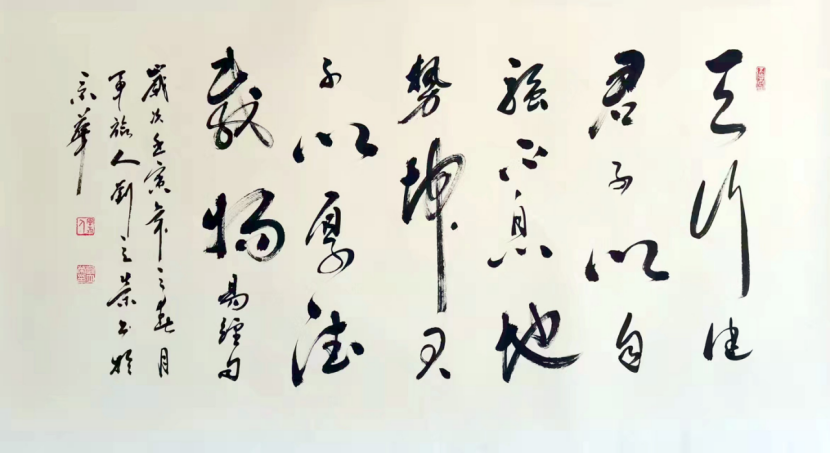 天行健
君子以自
强不息地
势坤君
子以厚德
载物易经句
岁次壬寅年之春月
军旅人刘立荣书于
京华